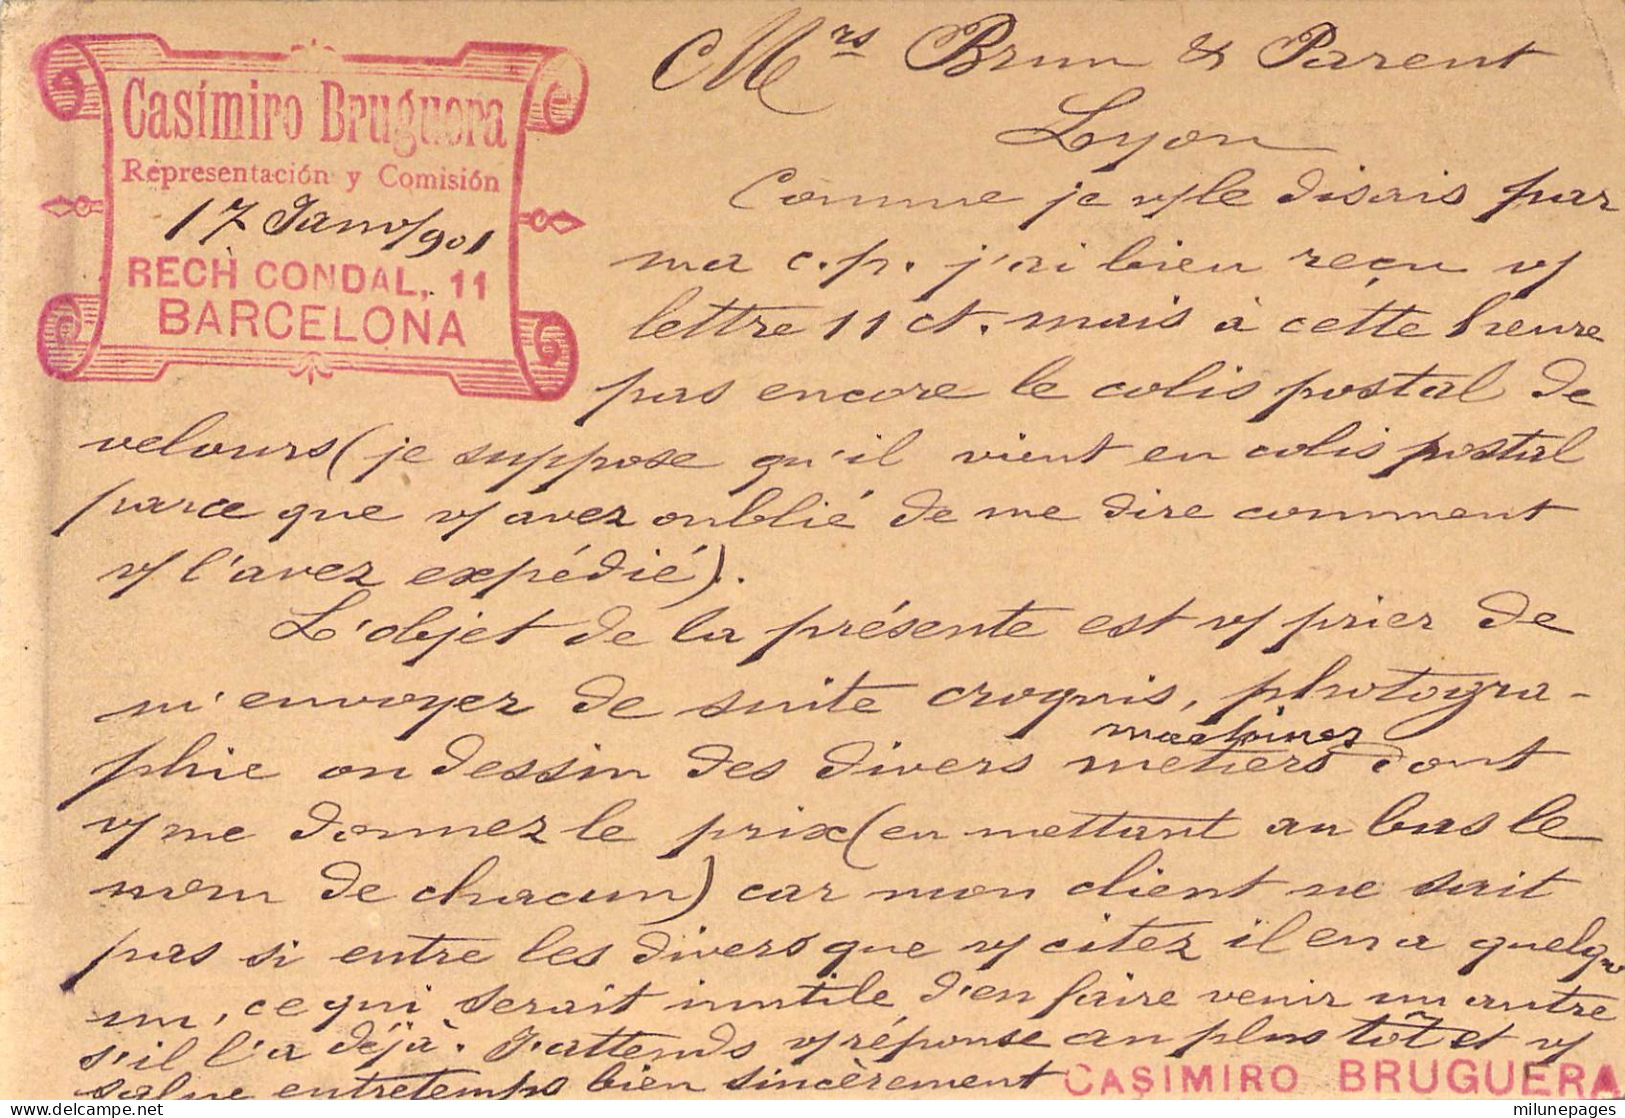 Casimiro Bruguera
Representación y Comisión
17 Janv/901
RECH CONDAL, 11
BARCELONA
Mrs Brun & Parent
Lyon
Comme je v/ le disais par
ma c.p. j'ai bien reçu v/
lettre 11 ct. mais à cette heure
pas encore le colis postal de
velours (je suppose qu'il vient en colis postal
parce que v/ avez oublié de me dire comment
v/ l'avez expédié).
L'objet de la présente est v/ prier de
m'envoyer de suite croquis, photogra-
phie ou dessin des divers métiers machines dont
v/ me donnez le prix (en mettant au bas le
nom de chacun) car mon client ne sait
pas si entre les divers que v/ citez il en a quelqu'
un, ce qui serait inutile d'en faire venir un autre
s'il l'a déjà. J'attends v/ réponse au plus tôt et v/
salue entretemps bien sincèrement CASIMIRO BRUGUERA
milunepages